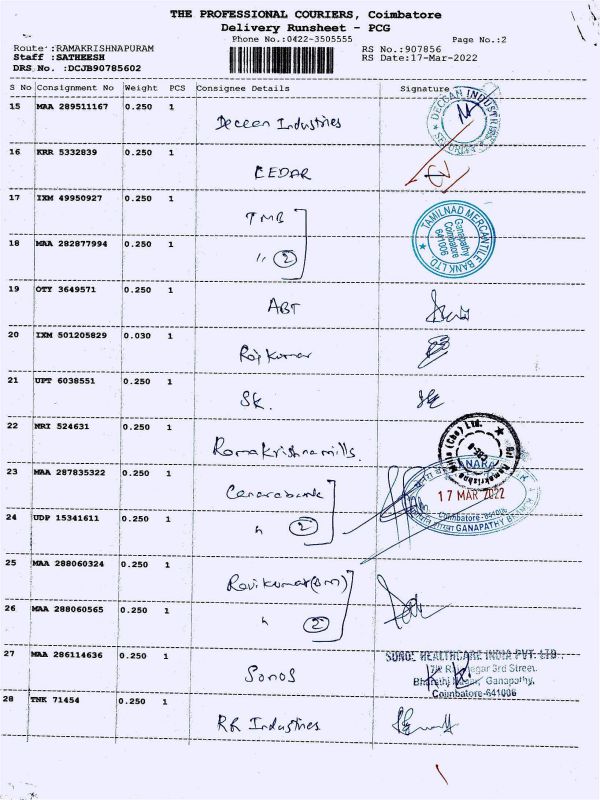 THE PROFESSIONAL COURIERS, Coimbatore
Delivery Runsheet - PCG
Phone No.:0422-3505555 Page No.:2
Route :RAMAKRISHNAPURAM RS No.:907856
Staff :SATHEESH RS Date:17-Mar-2022
DRS No. :DCJB90785602
S No Consignment No Weight PCS Consignee Details Signature
15 MAA 289511167 0.250 1
Deccan Industries
DECCAN INDUSTRIES
16 KRR 5332839 0.250 1
CEDAR
17 IXM 49950927 0.250 1
TMB
TAMILNAD MERCANTILE BANK LTD.
Ganapathy
Coimbatore
641006
18 MAA 282877994 0.250 1
" 2
19 OTY 3649571 0.250 1
ABT
20 IXM 501205829 0.030 1
Rajkumar
21 UPT 6038551 0.250 1
SK.
22 MRI 524631 0.250 1
Ramakrishna mills.
Sri Ramakrishna Mills (Cbe) Ltd.
CBE-6
23 MAA 287835322 0.250 1
Canara bank
CANARA
17 MAR 2022
Coimbatore-641006
GANAPATHY BRANCH
24 UDP 15341611 0.250 1
" 2
25 MAA 288060324 0.250 1
Ravikumar(BM)
26 MAA 288060565 0.250 1
" 2
27 MAA 286114636 0.250 1
Sonos
HEALTHCARE INDIA PVT. LTD.
3rd Street,
Ganapathy,
Coimbatore-641006
28 TNK 71454 0.250 1
RK Industries